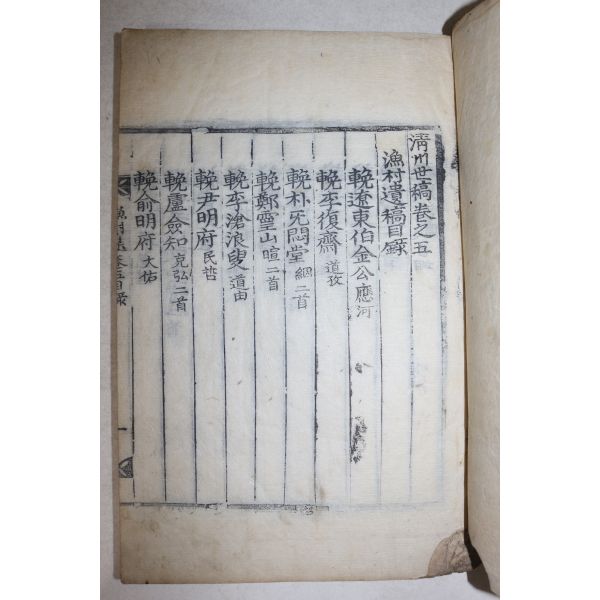 清川世稿卷之五
漁村遺稿目錄
輓遼東伯金公應河
輓李復齋道孜
輓朴无悶堂絪二首
輓鄭靈山暄二首
輓李滄浪叟道由
輓尹明府民哲
輓盧僉知克弘二首
輓俞明府大佑
漁村遺 卷五目錄
一